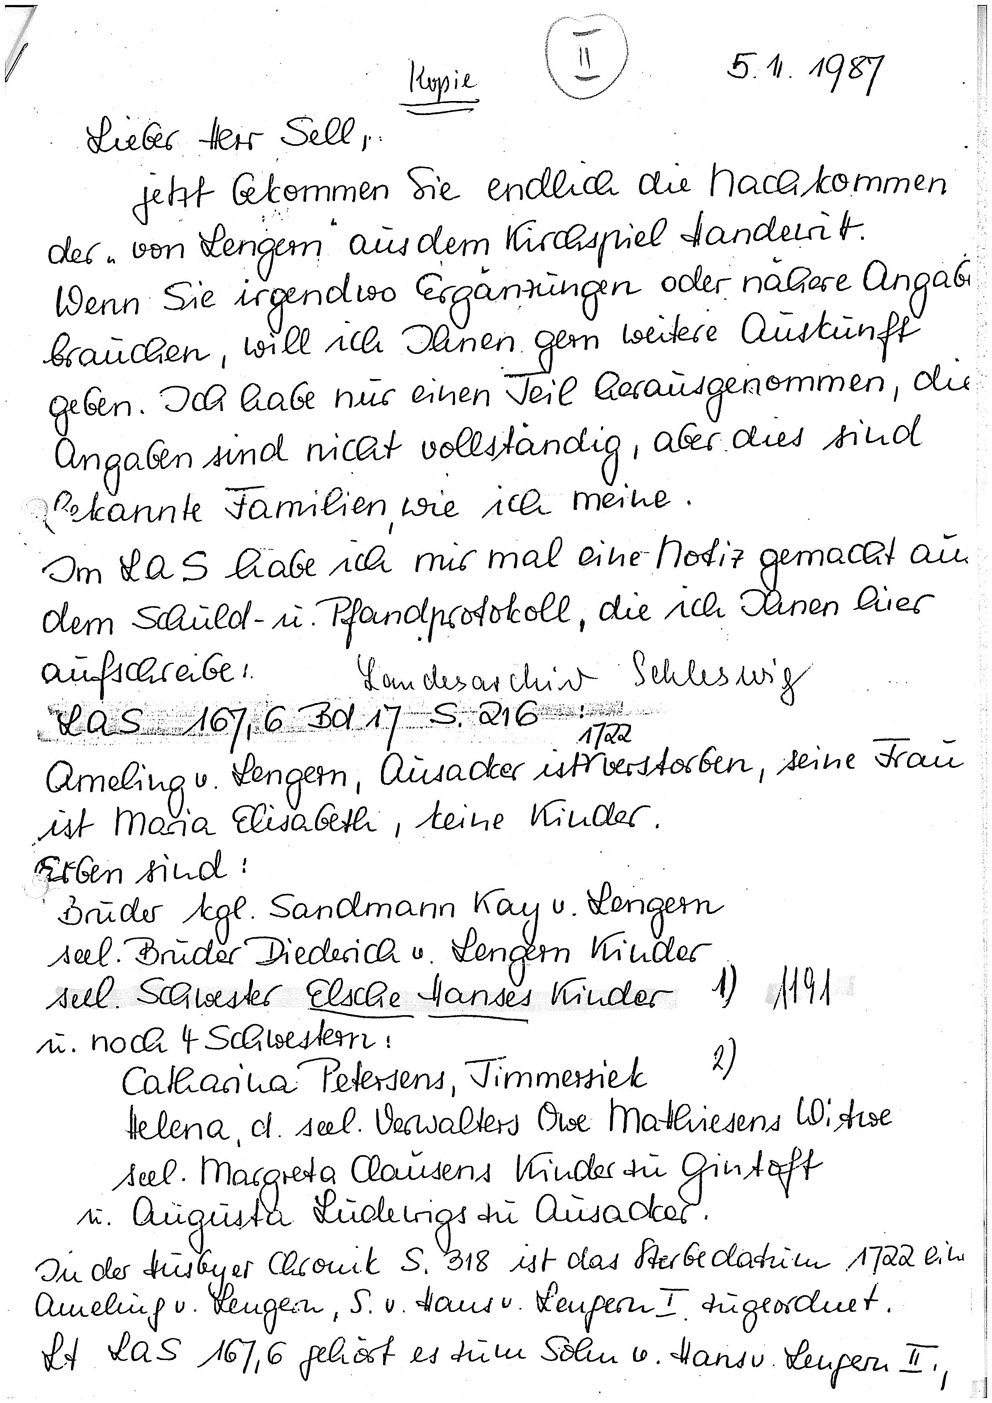 II
Kopie
5.11.1987
Lieber Herr Sell,
jetzt bekommen Sie endlich die Nachkommen
der „von Lengern" aus dem Kirchspiel Handewit.
Wenn Sie irgendwo Ergänzungen oder nähere Angab
brauchen, will ich Ihnen gern weitere Auskunft
geben. Ich habe nur einen Teil herausgenommen, die
Angaben sind nicht vollständig, aber dies sind
bekannte Familien, wie ich meine.
Im LAS habe ich mir mal eine Notiz gemacht au
dem Schuld- u. Pfandprotokoll, die ich Ihnen hier
aufschreibe:
Landesarchiv Schleswig
LAS 167,6 Bd 17 S. 216 :
1722
Ameling v. Lengern, Ausacker ist verstorben, seine Frau
ist Maria Elisabeth, keine Kinder.
Erben sind:
Bruder kgl. Sandmann Kay v. Lengern
seel. Bruder Diederich v. Lengern Kinder
seel. Schwester Elsche Hanses Kinder 1) 1191
u. noch 4 Schwestern: 2)
Catharina Petersens, Timmersiek
Helena, d. seel. Verwalters Owe Mathiesens Witwe
seel. Margreta Clausens Kinder zu Gintoft
u. Augusta Ludewigs zu Ausacker.
In der Husbyer Chronik S. 318 ist das Sterbedatum 1722 ein
Ameling v. Lengern, S. v. Hans v. Lengern I zugeordnet.
Lt LAS 167,6 gehört es zum Sohn v. Hans v. Lengern II.,